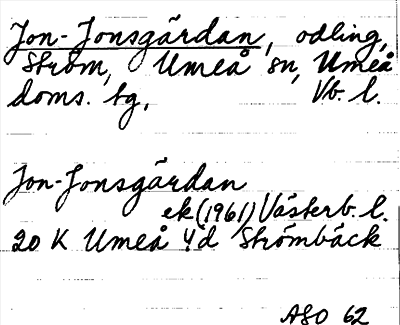 Jon-Jonsgärdan, odling,
Ström, Umeå sn, Umeå
doms. tg, Vb. l.
Jon-Jonsgärdan
ek (1961) Västerb. l.
20 K Umeå 4d Strömbäck
ASO 62